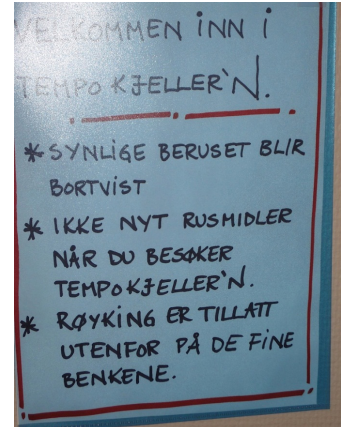 VELKOMMEN INN I
TEMPO KJELLER`N.
* SYNLIGE BERUSET BLIR
BORTVIST
* IKKE NYT RUSMIDLER
NÅR DU BESØKER
TEMPOKJELLER`N.
* RØYKING ER TILLATT
UTENFOR PÅ DE FINE
BENKENE.